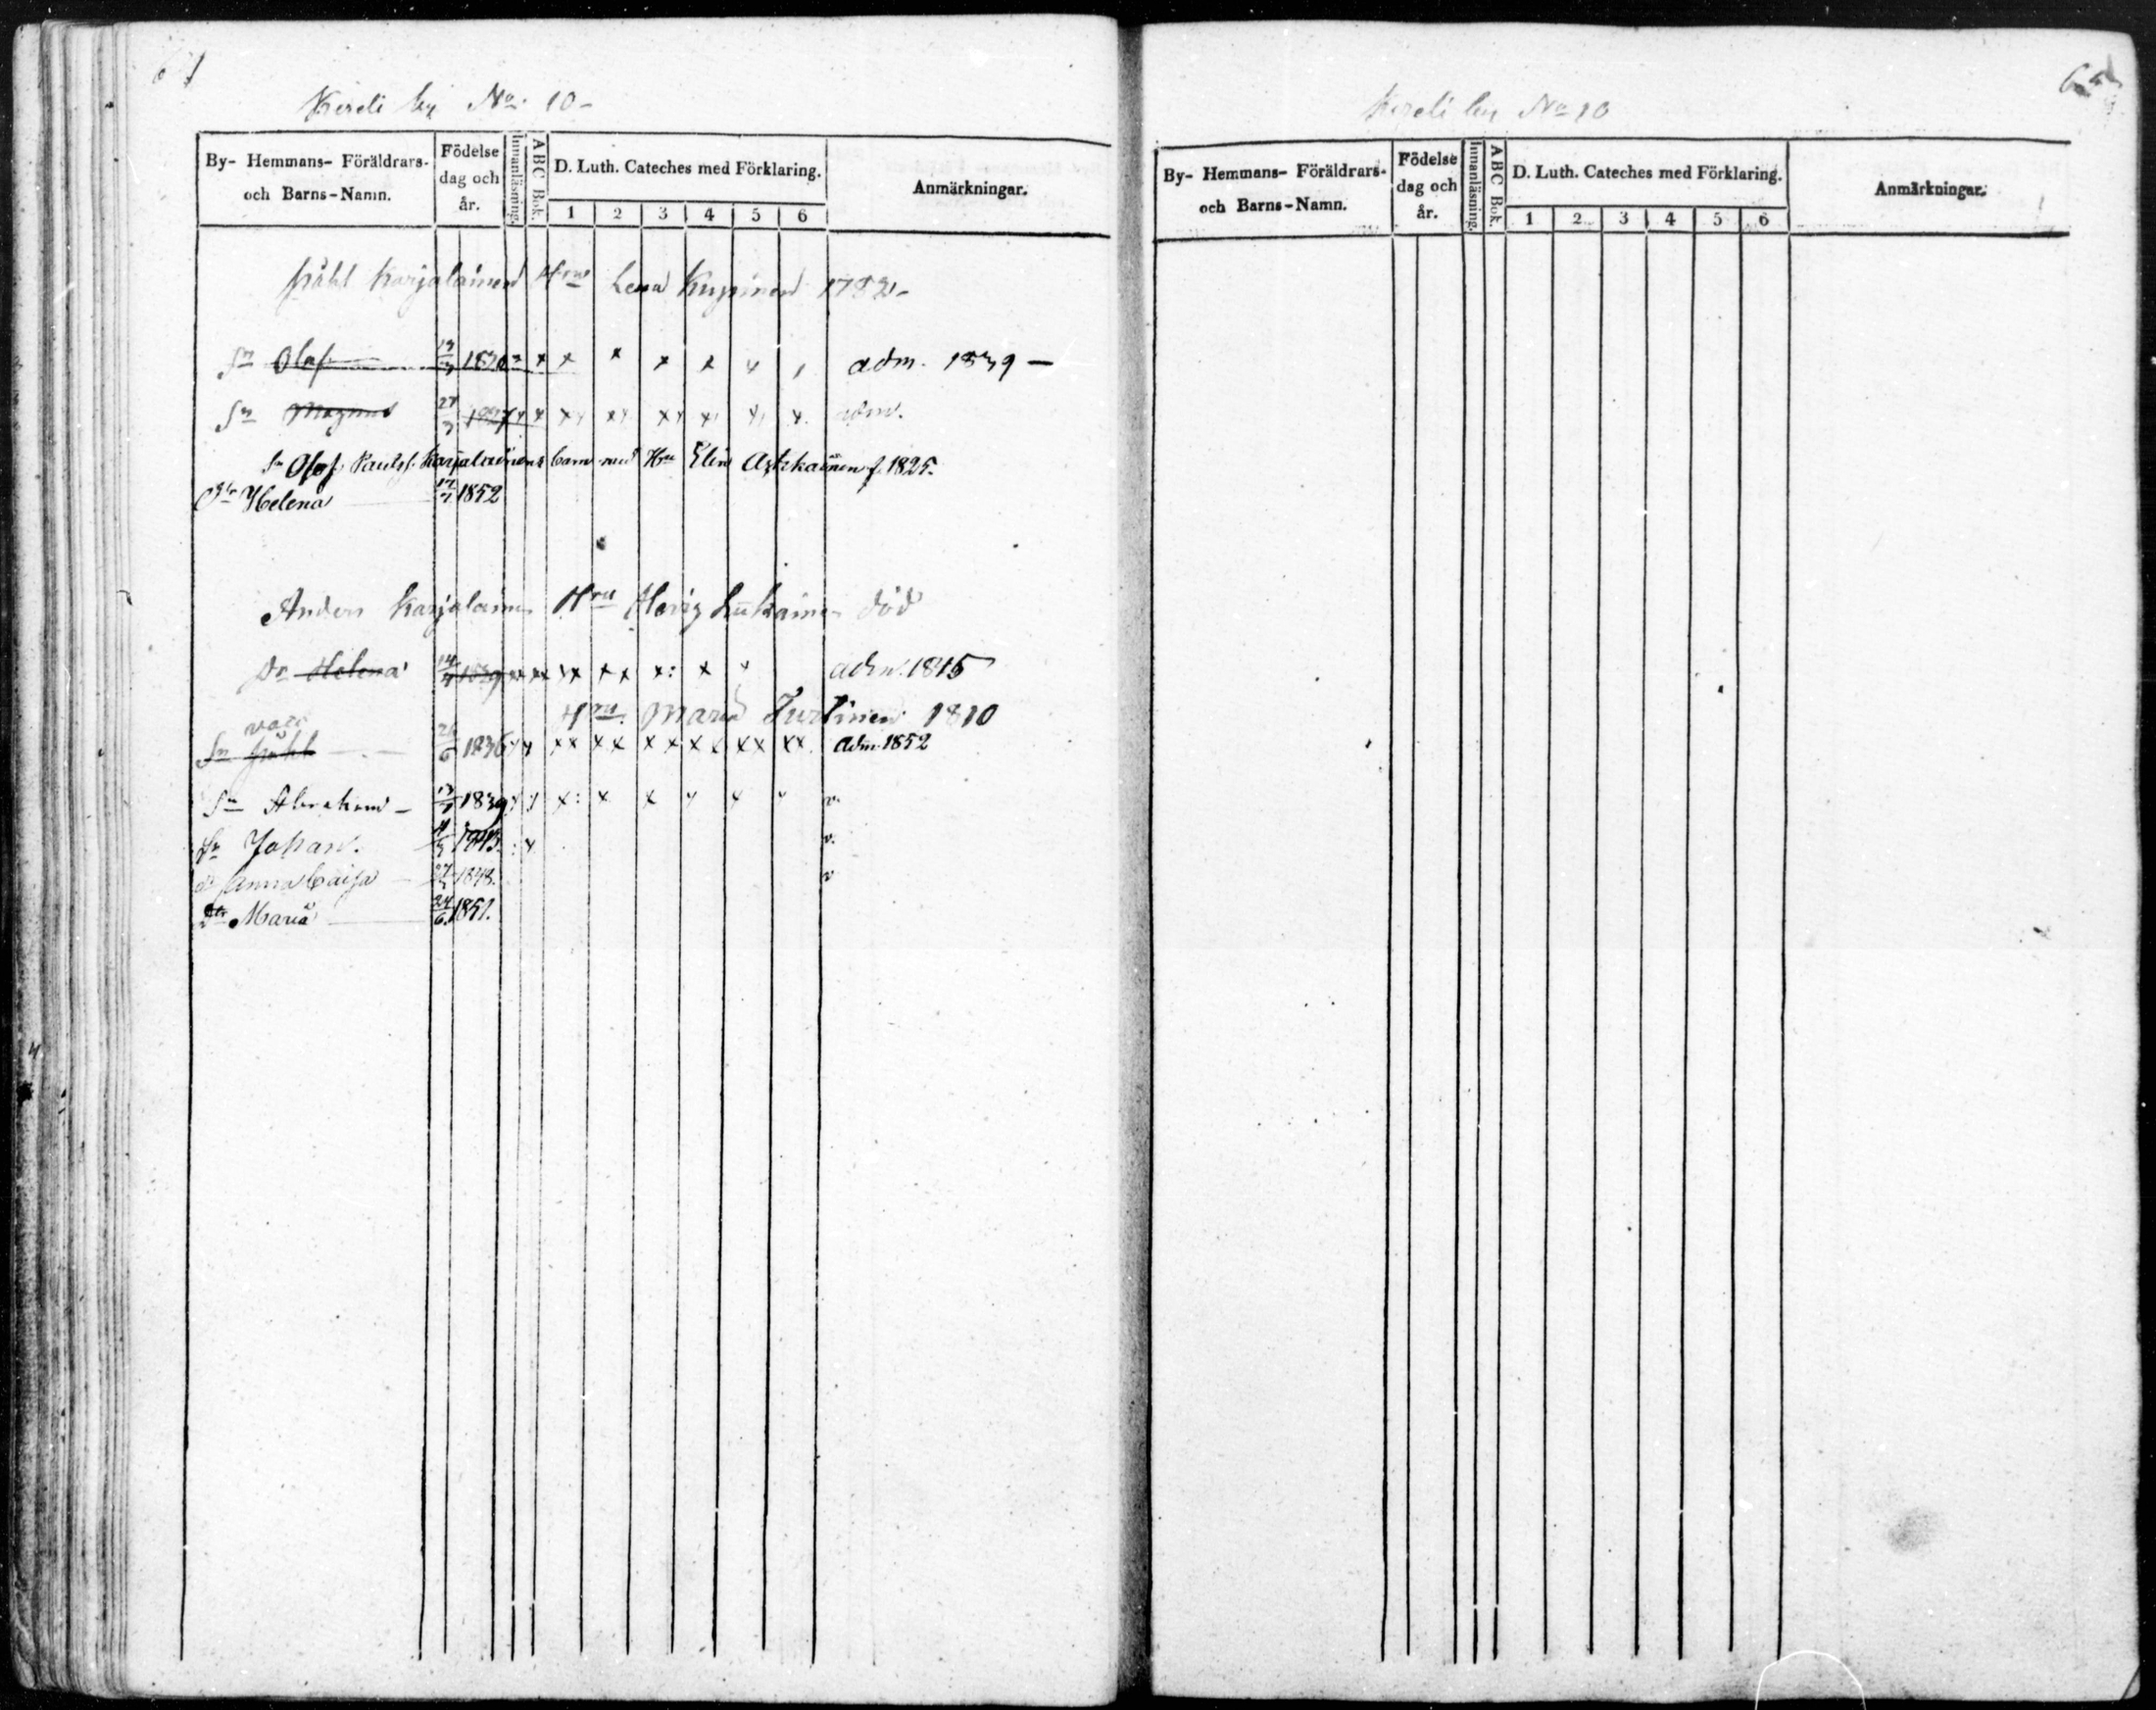 Kereli by No. 10-
By- Hemmans- Föräldrars- och Barns-Namn. Födelse dag och år. Innanläsning. ABC Bok. D. Luth. Cateches med Förklaring. 1 2 3 4 5 6 Anmärkningar.
Påhl Karjalainen Hru Lena 1782-
Sn Olof 1830 x x x x x x adm. 1839 —
Sn Magnus 1827 x x x x x x adm.
Sn Olof Paulss. Karjalainens barn med Hru Elin Aszkainen f. 1825.
Dtr Helena 1852
Anders Karjalainen Hru död
Dr Helena xx xx x: x x adm. 1845
Hru Maria Turtinen 1810
Sn Påhl vacc 26/6 1836 xx xx xx xx xx xx Adm. 1852
Sn Abraham - 1839 x: x x x x x v.
Sn Johan. 1843. v.
Dr Anna Caisa — 1848. v
Dtr Maria 24/6 1851.
Kereli by No 10
By- Hemmans- Föräldrars- och Barns-Namn. Födelse dag och år. Innanläsning. ABC Bok. D. Luth. Cateches med Förklaring. 1 2 3 4 5 6 Anmärkningar.